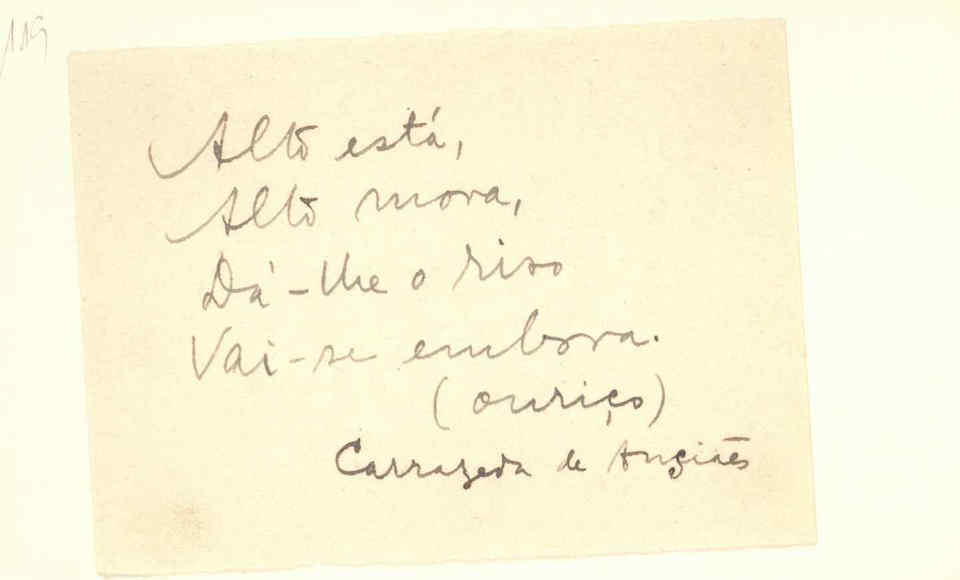 119
Alto está,
Alto mora,
Dá-lhe o riso
Vai-se embora.
(ouriço)
Carrazeda de Ançiães